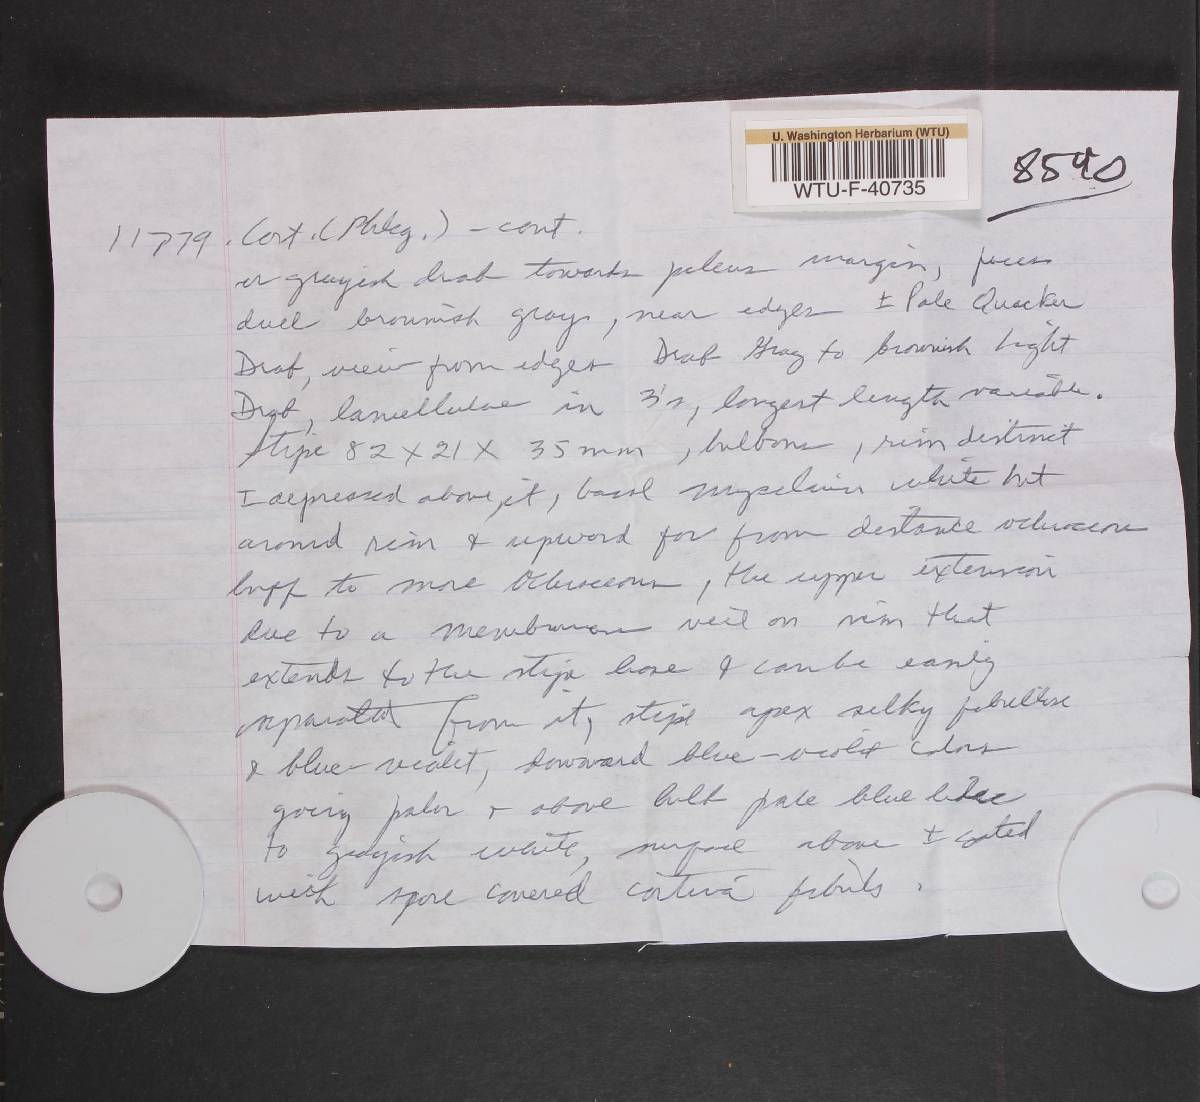 U. Washington Herbarium (WTU)
WTU-F-40735
8540
11779. Cort. (Phleg.) - cont.
or grayish drab towards pileus margin, faces
dull brownish gray, near edges ± Pale Quaker
Drab, view from edges Drab Gray to brownish Light
Drab, lamellulae in 3's, longest length variable.
Stipe 82 x 21 x 35 mm, bulbous, rim distinct
± depressed above it, basal mycelium white but
around rim & upward for from distance ochraceous
buff to more Ochraceous, the upper extension
due to a membranous veil on rim that
extends to the stipe base & can be easily
separated from it, stipe apex silky fibrillose
& blue-violet, downward blue-violet colors
going paler & above bulb pale blue lilac
to grayish white, surface above ± coated
with spore covered cortina fibrils.